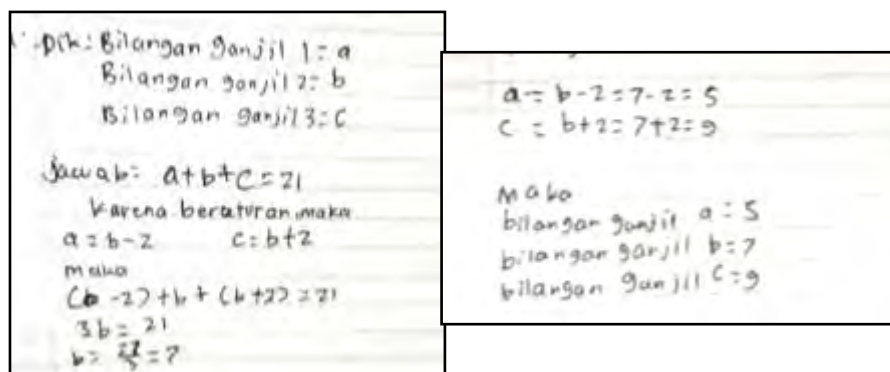 Dik: Bilangan ganjil 1 = a
Bilangan ganjil 2 = b
Bilangan ganjil 3 = c
Jawab: a+b+c = 21
Karena beraturan maka
a = b-2 c = b+2
maka
(b-2)+b+(b+2) = 21
3b = 21
b = 21/3 = 7
a = b-2 = 7-2 = 5
c = b+2 = 7+2 = 9
Maka
bilangan ganjil a = 5
bilangan ganjil b = 7
bilangan ganjil c = 9